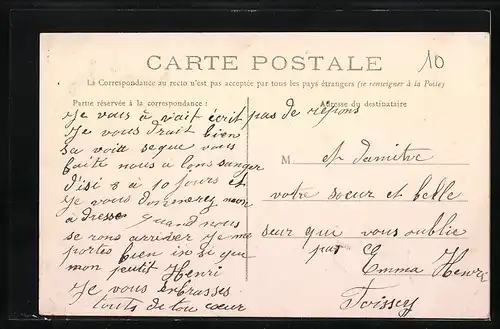 CARTE POSTALE
10
La Correspondance au recto n'est pas acceptée par tous les pays étrangers (se renseigner à la Poste)
Partie réservée à la correspondance :
Adresse du destinataire
Je vous a vait écrit pas de répons
Je vous drait bien
sa voir se que vous
faite nous a lons sanger
d'isi 8 à 10 jours et
Je vous donnerez mon
adresse quand nous
se rons arriver Je me
portes bien in si que
mon peutit Henri
Je vous enbrasses
touts de tou cœur
M
et
votre soeur et belle
seur qui vous oublie
pas
Emma Henri
Toissey